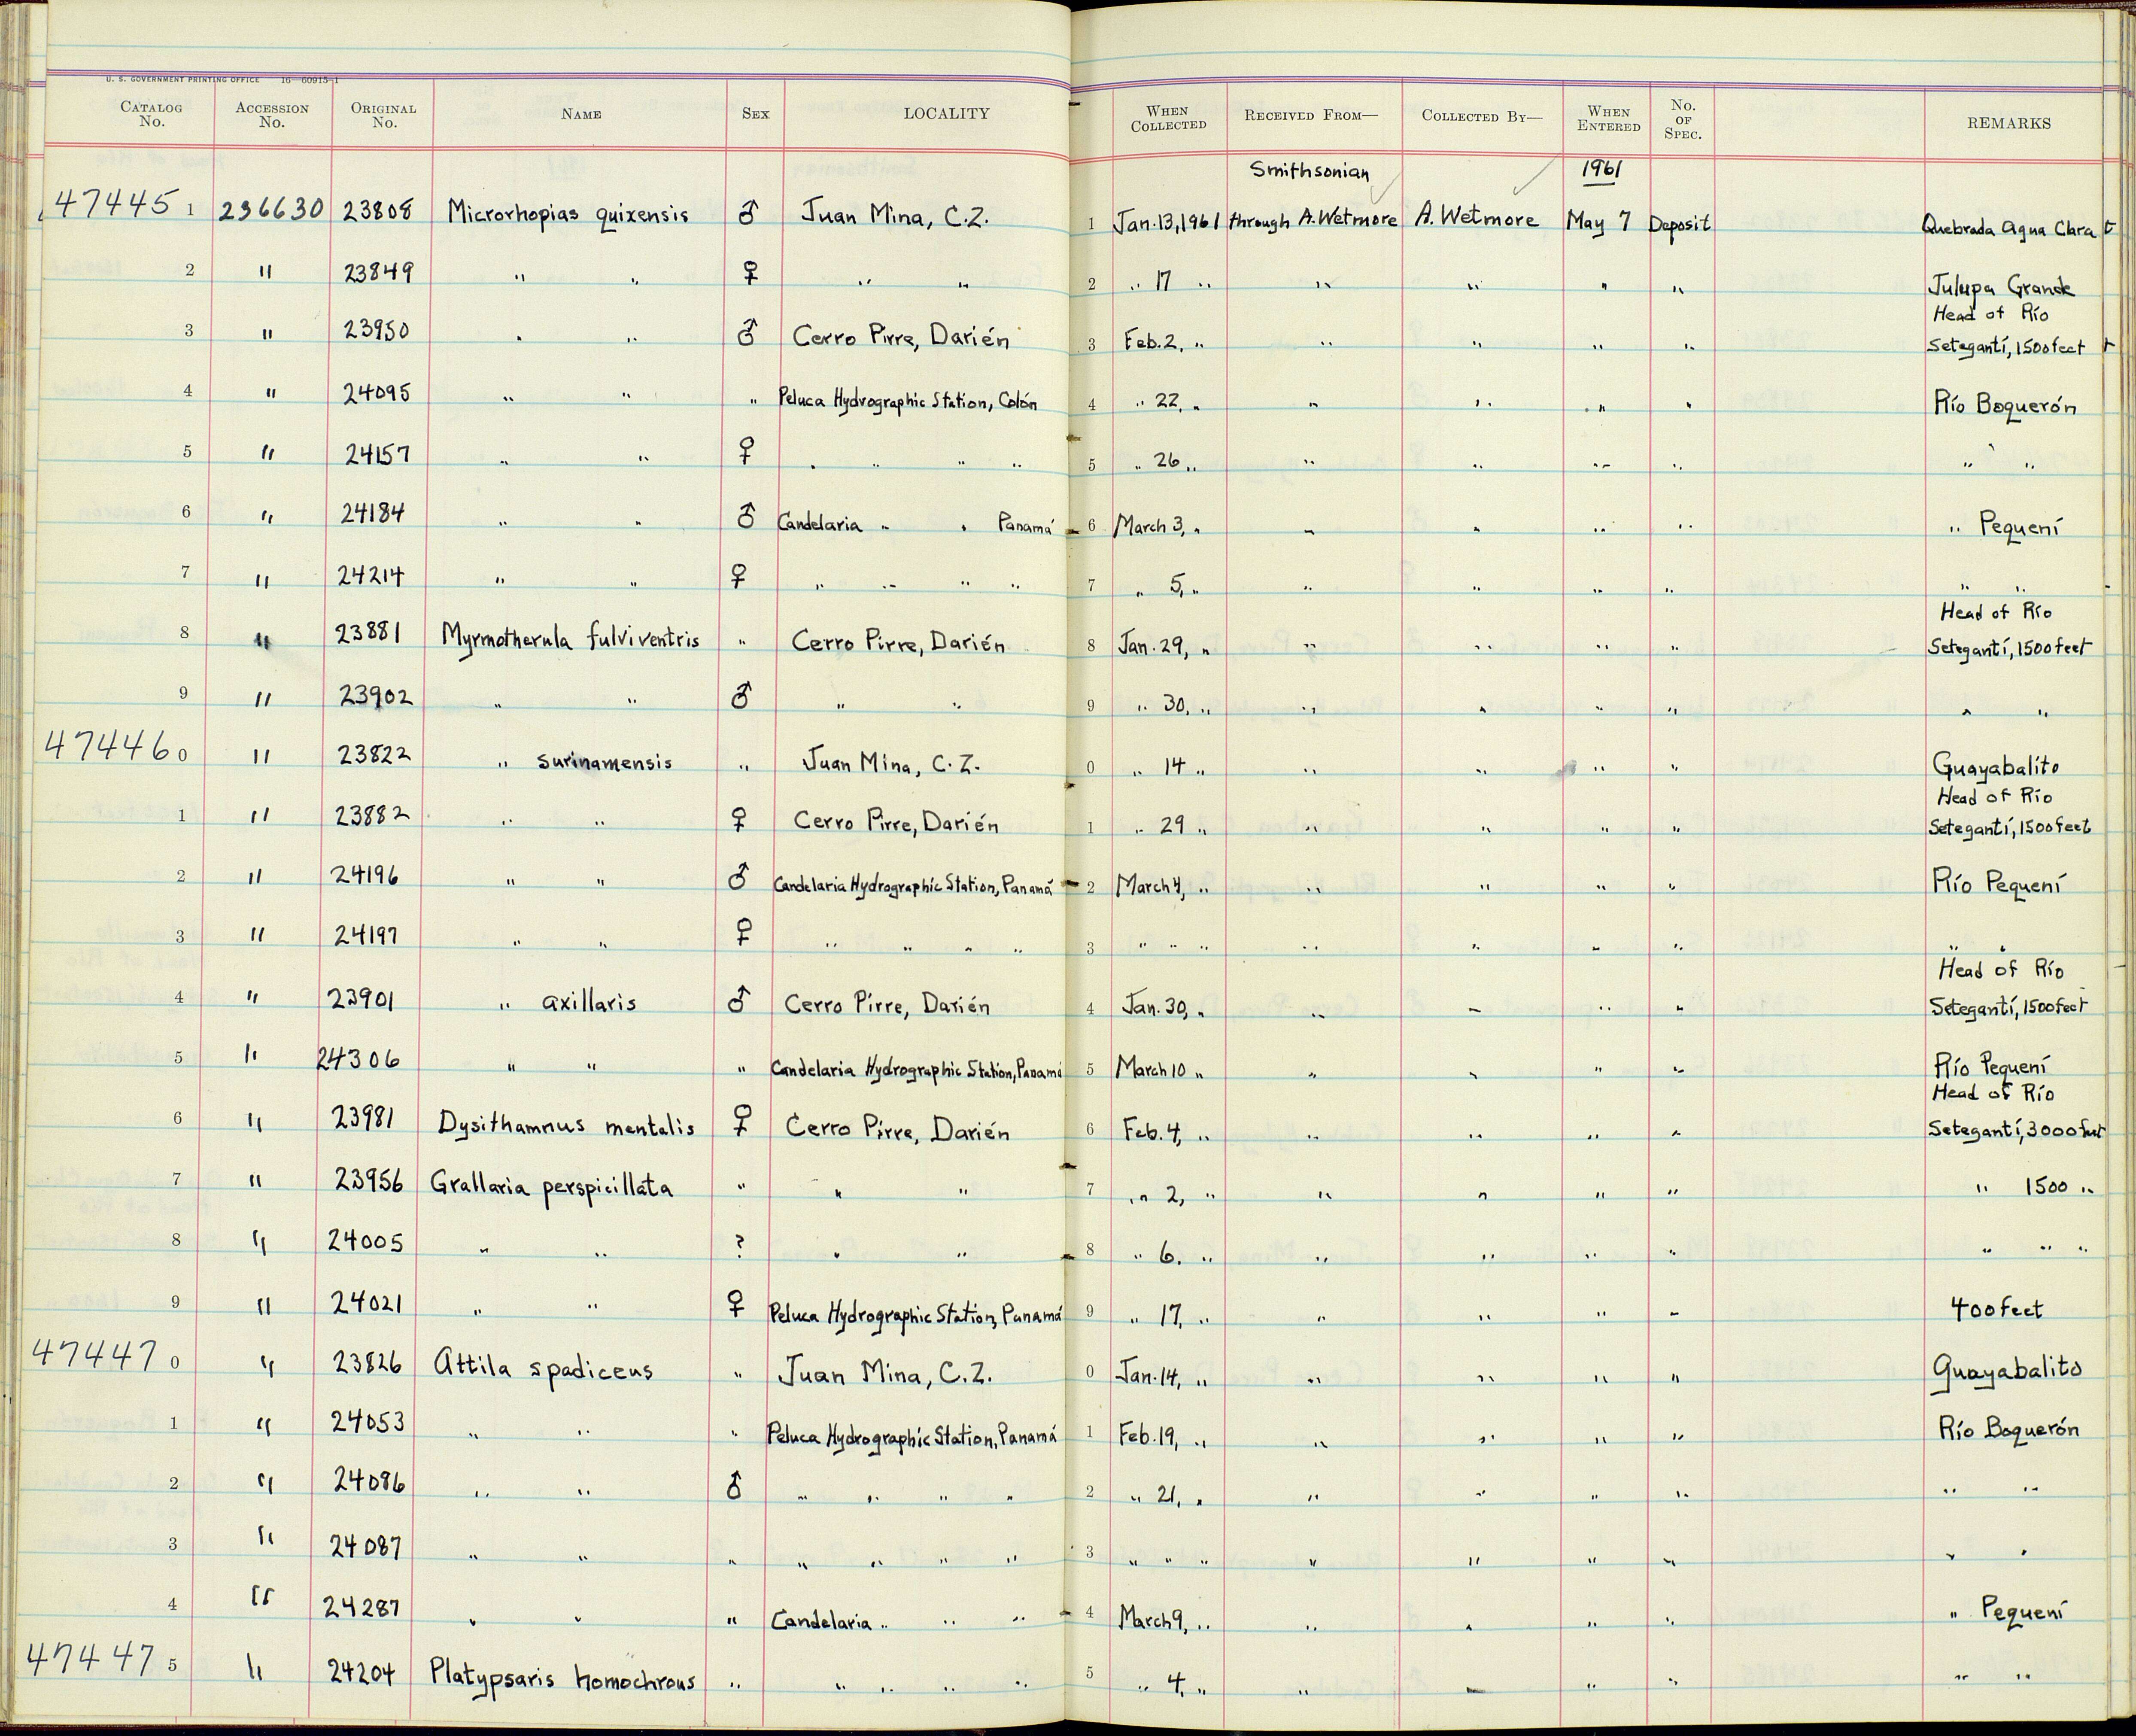 U. S. GOVERNMENT PRINTING OFFICE 16—60915-1
CATALOG No. ACCESSION No. ORIGINAL No. NAME SEX LOCALITY WHEN COLLECTED RECEIVED FROM— COLLECTED BY— WHEN ENTERED No. OF SPEC. REMARKS
Smithsonian 1961
47445 1 236630 23808 Microrhopias quixensis ♂ Juan Mina, C.Z. 1 Jan. 13, 1961 through A. Wetmore A. Wetmore May 7 Deposit Quebrada Agua Clara
2 " 23849 " " ♀ " " 2 " 17 " " " " " Julupa Grande
Head of Río
3 " 23950 " " ♂ Cerro Pirre, Darién 3 Feb. 2, " " " " " Setegantí, 1500 feet
4 " 24095 " " " Peluca Hydrographic Station, Colón 4 " 22, " " " " " Río Boquerón
5 " 24157 " " ♀ " " " " 5 " 26 " " " " " " "
6 " 24184 " " ♂ Candelaria " " Panamá 6 March 3, " " " " " " Pequení
7 " 24214 " " ♀ " " " " 7 " 5, " " " " " " "
Head of Río
8 " 23881 Myrmotherula fulviventris " Cerro Pirre, Darién 8 Jan. 29, " " " " " Setegantí, 1500 feet
9 " 23902 " " ♂ " " 9 " 30, " " " " " " "
47446 0 " 23822 " surinamensis " Juan Mina, C.Z. 0 " 14 " " " " " Guayabalito
Head of Río
1 " 23882 " " ♀ Cerro Pirre, Darién 1 " 29 " " " " " Setegantí, 1500 feet
2 " 24196 " " ♂ Candelaria Hydrographic Station, Panamá 2 March 4, " " " " " Río Pequení
3 " 24197 " " ♀ " " " " 3 " " " " " " " " "
Head of Río
4 " 23901 " axillaris ♂ Cerro Pirre, Darién 4 Jan. 30, " " " " " Setegantí, 1500 feet
5 " 24306 " " " Candelaria Hydrographic Station, Panamá 5 March 10 " " " " " Río Pequení
Head of Río
6 " 23981 Dysithamnus mentalis ♀ Cerro Pirre, Darién 6 Feb. 4, " " " " " Setegantí, 3000 feet
7 " 23956 Grallaria perspicillata " " " 7 " " 2, " " " " " " 1500 "
8 " 24005 " " ? " " 8 " 6. " " " " " " " "
9 " 24021 " " ♀ Peluca Hydrographic Station, Panamá 9 " 17, " " " " " 400 feet
47447 0 " 23826 Attila spadiceus " Juan Mina, C.Z. 0 Jan. 14, " " " " " Guayabalito
1 " 24053 " " " Peluca Hydrographic Station, Panamá 1 Feb. 19, " " " " " Río Boquerón
2 " 24086 " " ♂ " " " " 2 " 21, " " " " " " "
3 " 24087 " " " " " " " 3 " " " " " " " " "
4 " 24287 " " " Candelaria " " " 4 March 9, " " " " " " Pequení
47447 5 " 24204 Platypsaris homochrous " " " " " 5 " 4, " " " " " " "